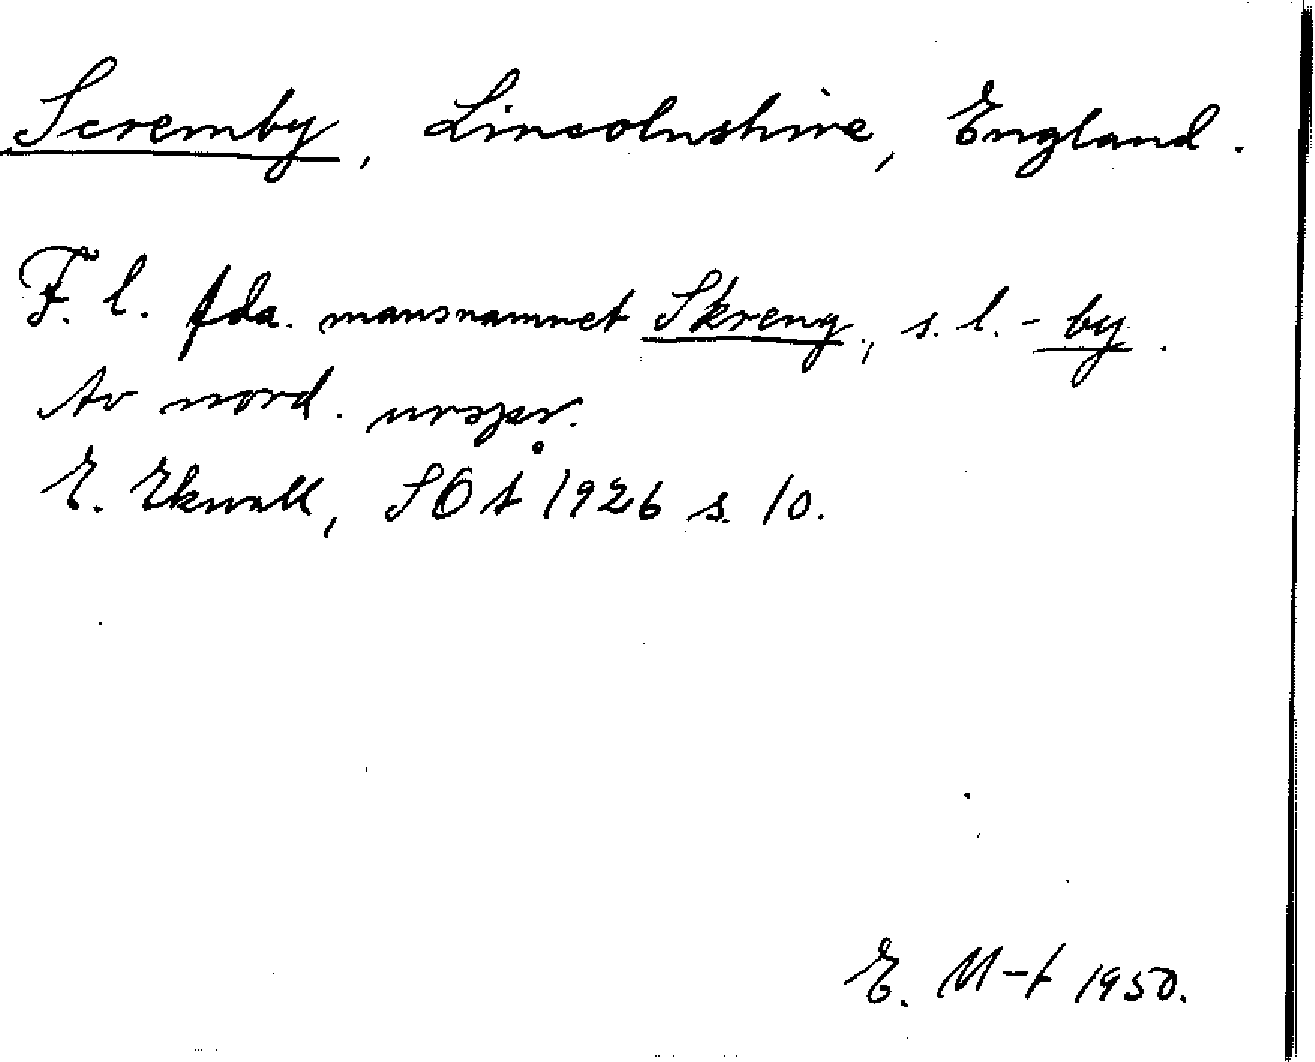 Scremby, Lincolnshire, England.
F. l. fda. mansnamnet Skreng, s. l. - by.
Av nord. urspr.
E. Ekwall, SOÅ 1926 s. 10.
E. M-t 1950.